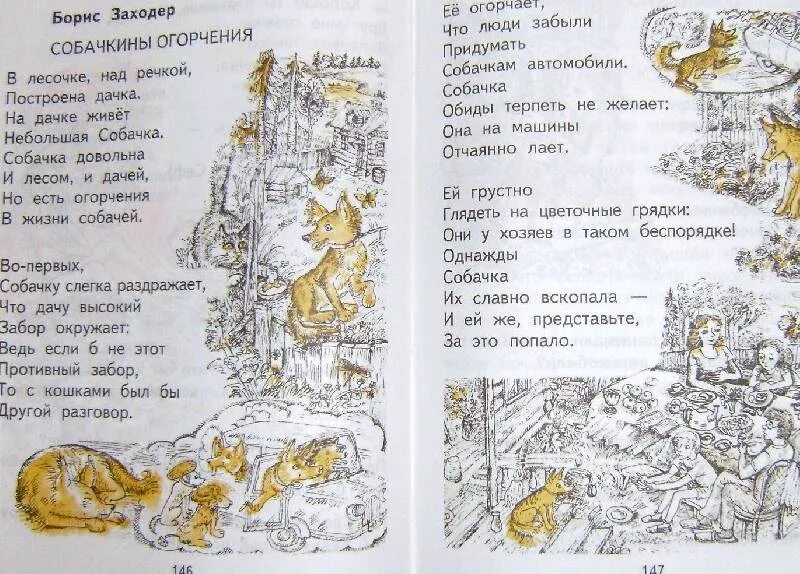 Борис Заходер
СОБАЧКИНЫ ОГОРЧЕНИЯ
В лесочке, над речкой,
Построена дачка.
На дачке живёт
Небольшая Собачка.
Собачка довольна
И лесом, и дачей,
Но есть огорчения
В жизни собачей.
Во-первых,
Собачку слегка раздражает,
Что дачу высокий
Забор окружает:
Ведь если б не этот
Противный забор,
То с кошками был бы
Другой разговор.
146
Её огорчает,
Что люди забыли
Придумать
Собачкам автомобили.
Собачка
Обиды терпеть не желает:
Она на машины
Отчаянно лает.
Ей грустно
Глядеть на цветочные грядки:
Они у хозяев в таком беспорядке!
Однажды
Собачка
Их славно вскопала —
И ей же, представьте,
За это попало.
147